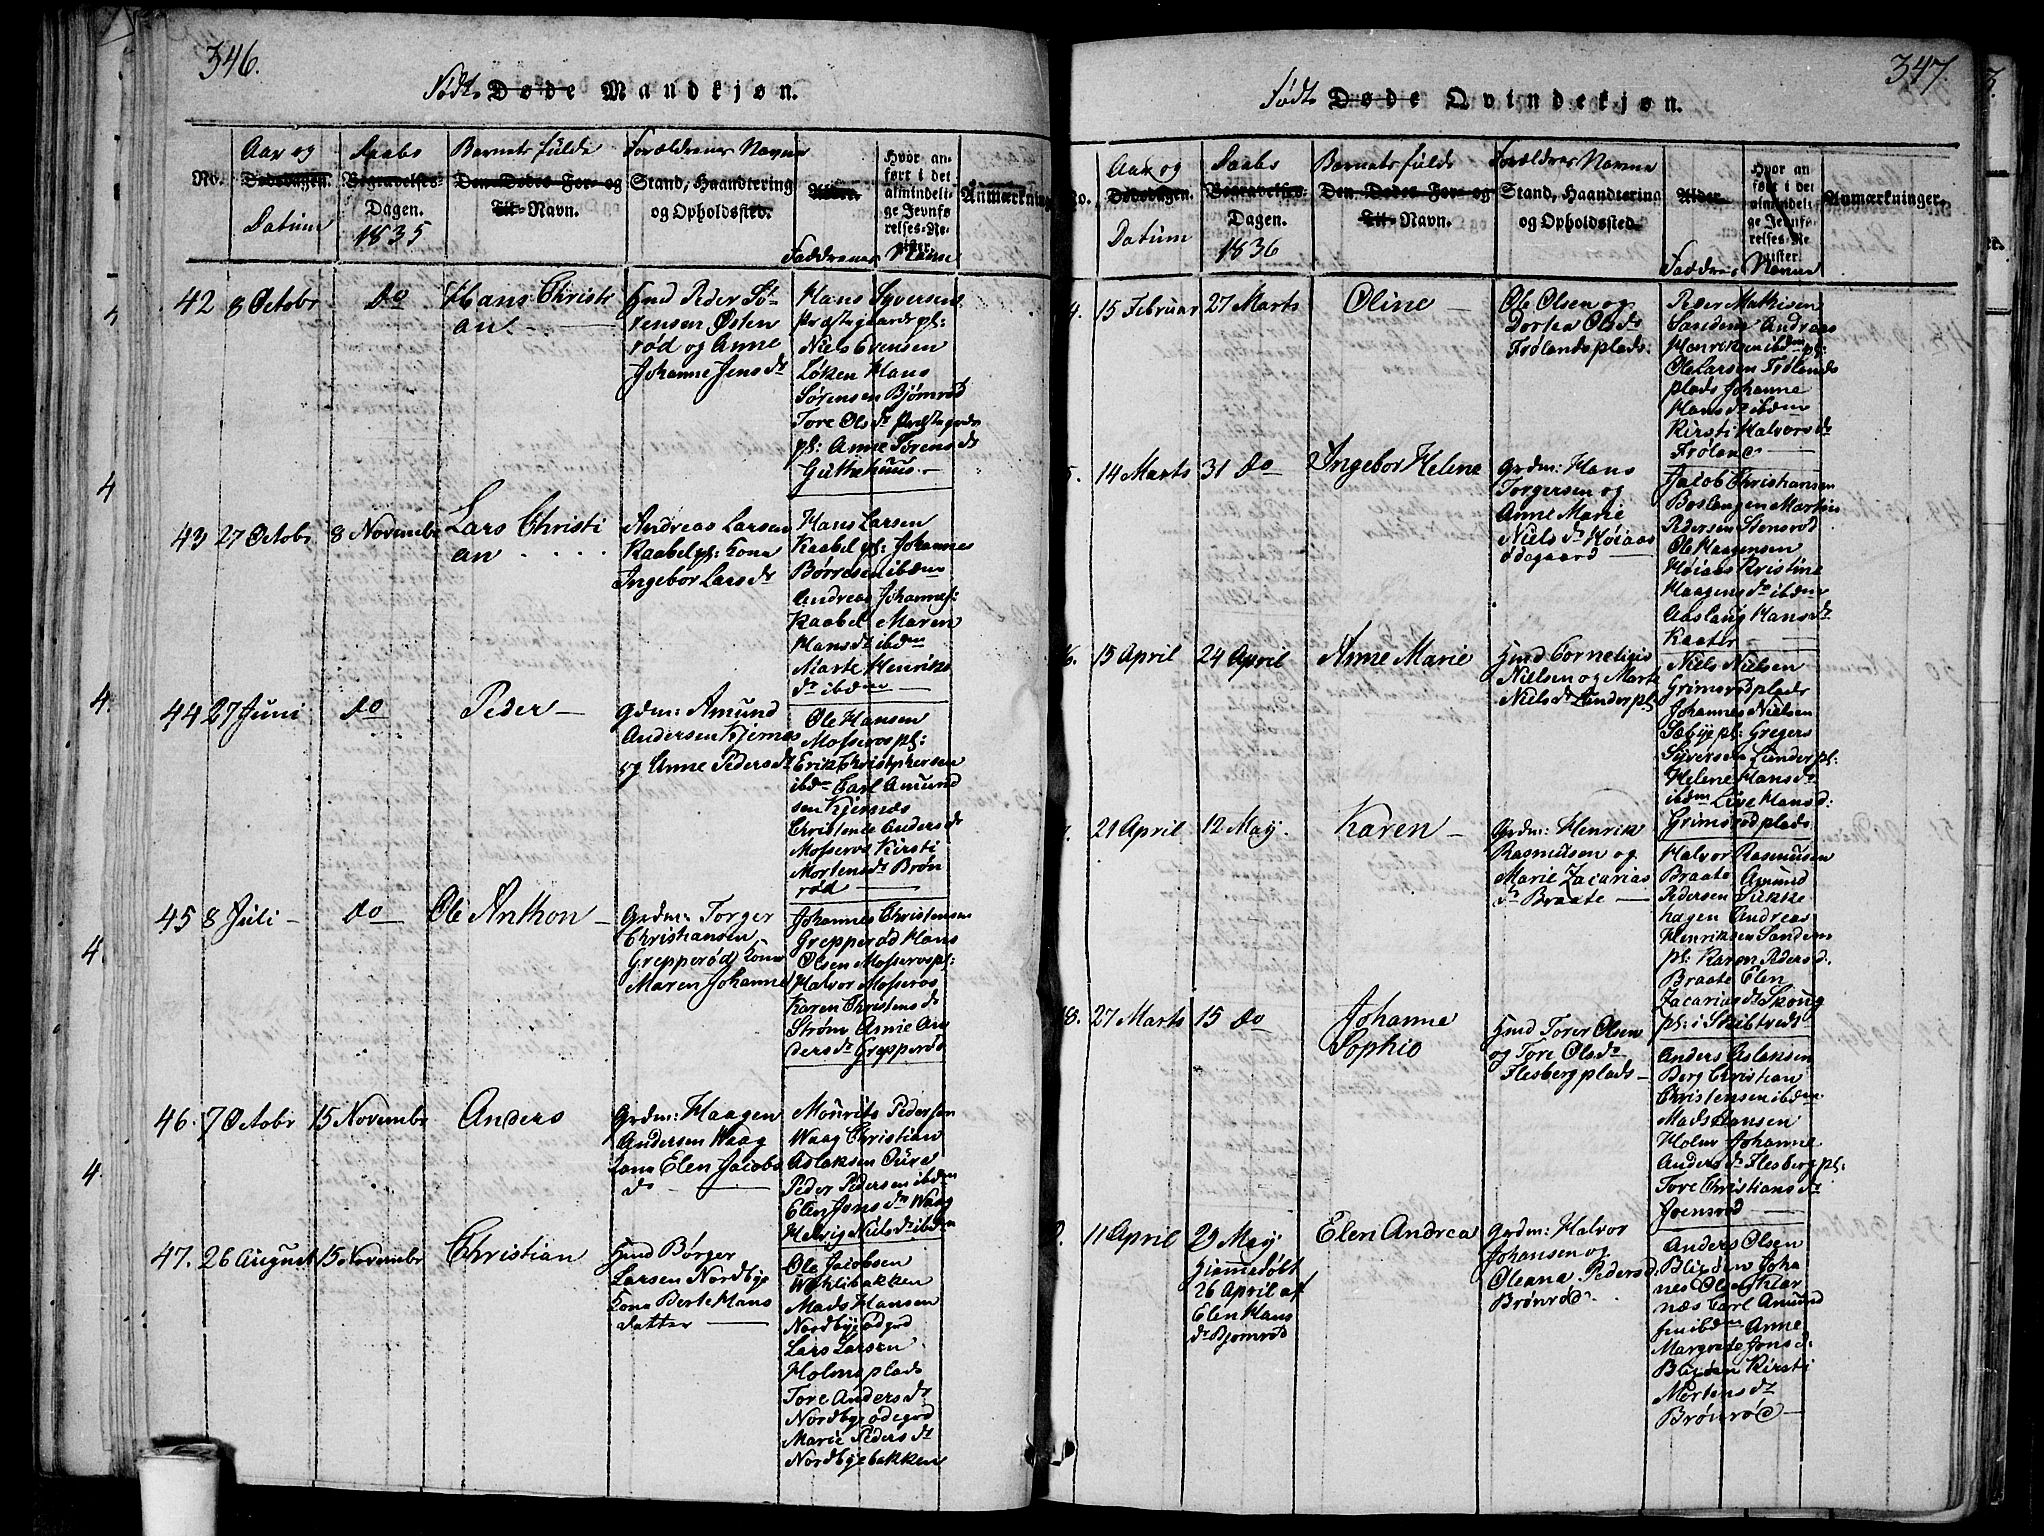 346.
Født Døde Mandkjøn.
No.
Aar og
Dødsdagen.
Datum
Daabs
Begravelses-
Dagen.
1835
Barnets fulde
Den Dødes For- og
Til- Navn.
Forældrenes Navne
Stand, Haandtering
og Opholdssted.
Alder.
Faddrenes Navne
Hvor an-
ført i det
almindeli-
ge Jevnfø-
relses-Re-
gister.
Anmærkninger
42
8 Octobr
do
Hans Christi
an.
Gmd Peder Sø-
rensen Østen
rød og Anne
Johanne Jensdr
Hans Syversen
Præstegaards pl:
Niels Evensen
Løken Hans
Sørensen Bjørnrød
Tore Olsdr Præstegrds
pl: Anne Sørensdr
Guttehuus
43
27 Octobr
8 Novembr
Lars Christi
an
Andreas Larsen
Kaabel pl: Kona
Ingebor Larsdr
Hans Larsen
Kaabel pl: Johannes
Børresen ibdm
Andreas Johannes:
Kaabel Maren
Hansdr ibdm
Marte Henriks
dr ibdm
44
27 Juni
do
Peder
Grdm: Amund
Andersen Kjernes
og Anne Pedersdr
Ole Hansen
Mosseros pl:
Erik Christophersen
ibdm Carl Amund
sen Kjernæs
Christense Andersdr
Mosseros Kirsti
Mortensdr Brøn
rød
45
8 Juli
do
Ole Anthon
Grdm: Torger
Christiansen
Grepperød Kona
Maren Johanne
Johannes Christensen
Grepperød Hans
Olsen Mosseros pl:
Halvor Mosseros
Karen Christensdr
Strøm Anne An
dersdr Grepperød
46.
7 Octobr
15 Novembr
Anders
Grdm: Haagen
Andersen Waag
Kona Elen Jacobs
d
Mourits Pedersen
Waag Christian
Aslaksen Oure
Peder Pedersen ibdm
Elen Jonsdr Waag
Helvig Nielsdr ibdm
47.
26 August
15 Novembr
Christian
Gmd Børger
Larsen Nordbye
Kona Berte Hans
datter
Ole Jacobsen
Wahlibakken
Mads Hansen
Nordbyødgrd
Lars Larsen
Holmsplads
Tore Andersdr
Nordbyeødegrd
Marie Pedersdr
Nordbyebakken
347.
Født Døde Qvindekjøn.
No.
Aar og
Dødsdagen.
Datum
Daabs
Begravelses-
Dagen.
1836
Barnets fulde
Den Dødes For- og
Til- Navn.
Forældres Navne
Stand, Haandtering
og Opholdssted.
Alder.
Faddres Navne
Hvor an
ført i det
almindeli-
ge Jevnfø-
relses-Re
gister
Anmærkninger.
4.
15 Februar
27 Marts
Oline
Ole Olsen og
Dortea Olsdr
Frølandsplads
Peder Mathisen
Sandem Andreas
Henriksen ibdm pl:
Ole Larsen Frølands
plads Johanne
Hansdr ibdm
Kirsti Halvorsdr
Frøland
5.
14 Marts
31 do
Ingebor Helene
Grdm: Hans
Torgersen og
Anne Marie
Nielsdr Høiaas
ødegaard
Jacob Christiansen
Boslangen Martin
Pedersen Stensrød
Ole Haagensen
Høiaas Kristine
Haagensdr ibdm
Aaslaug Hansdr
Kaater
6.
15 April
24 April
Anne Marie
Gmd Cornelius
Nielsen og Marte
Nielsdr Lunder pl
Niels Nielsen
Grimsrødplads
Johannes Nielsen
Sæbye pl: Gregers
Syversen Lunder pl:
Helene Hansdr
ibdm Live Hansd:
Grimsrødplads
21 April
12 May.
Karen
Grdm: Henrik
Rasmusen og
Marie Zacarias
dr Braate
Halvor Rasmusen
Braate Amund
Pedersen Sukke
hagen Andreas
Henriksen Sandem
pl: Karen Pedersd:
Braate Elen
Zacariasdr Skoug
pl: i Skibtvedt
8.
27 Marts
15 do
Johanne
Sophie
Gmd Torer Olsen
og Tore Olsdr
Flesbergplads
Anders Aslaksen
Berg Christian
Christensen ibdm
Mads Hansen
Holm Johanne
Andersdr Flesberg pl:
Tore Christiansdr
Joensrød
11 April
29 May
Hjemmedøbt
26 April af
Elen Hans
dr Bjørnrød
Elen Andrea
Grdm: Halvor
Johansen og
Oleana Pedersd:
Brønrød
Anders Olsen
Blixøen Joha
nes Olsen Kjær
næs Carl Amund
sen ibdm Anne
Margrete Jonsd:
Blixøen Kirsti
Mortensdr
Brønrød